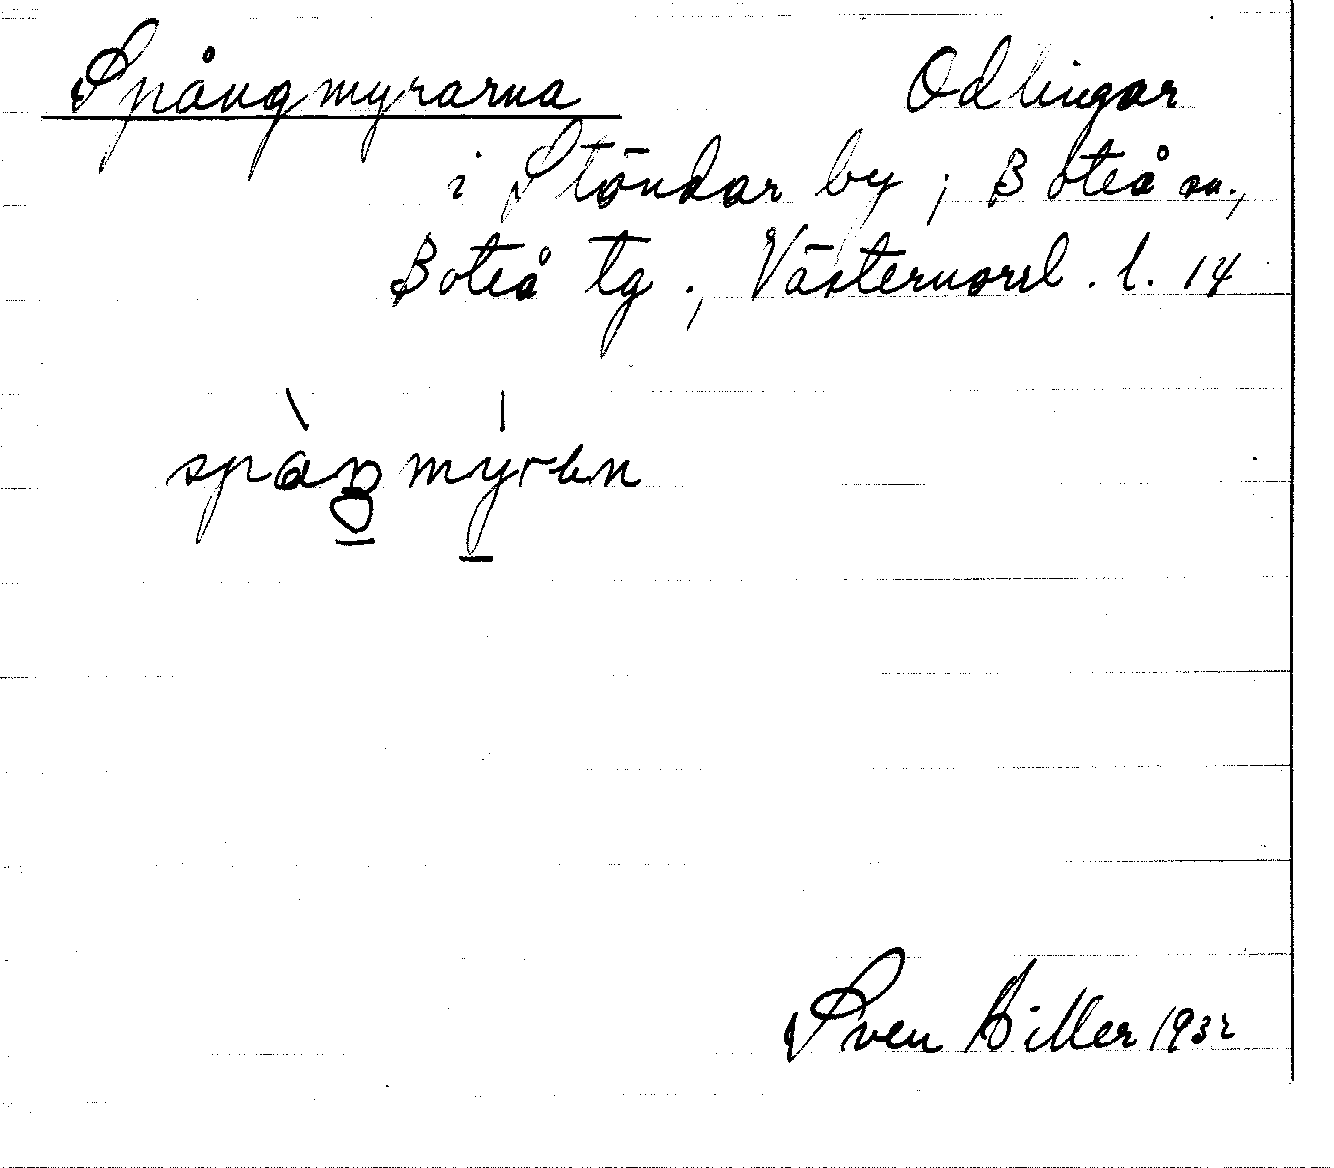 Spångmyrarna Odlingar
i Stöndar by; Boteå sn.,
Boteå tg., Västernorrl. l. 14
Sven Hiller 1932